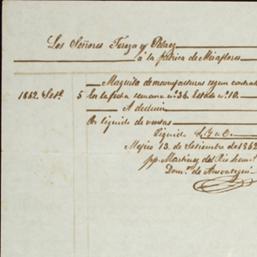 Los Señores Feraza y Pelaez
á la fábrica de Miraflores
Maquila de manufacturas segun contrato
1862 Set.e 5 En la fecha semana nº 36. Estado nº 10.
A deducir
Por liquido de ventas
Liquido S. Y. u O.
Mejico 13 de Setiembre de 1862
pp. Martinez del Rio herm.s
Dom.o de Ansoategui